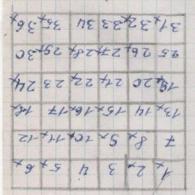 1x 2x 3 4 5x 6x
7 8x 9x 10x 11x 12
13 14x 15x 16x 17 18x
19x 20 21x 22x 23 24x
25 26x 27x 28x 29x 30
31x 32x 33 34 35x 36x